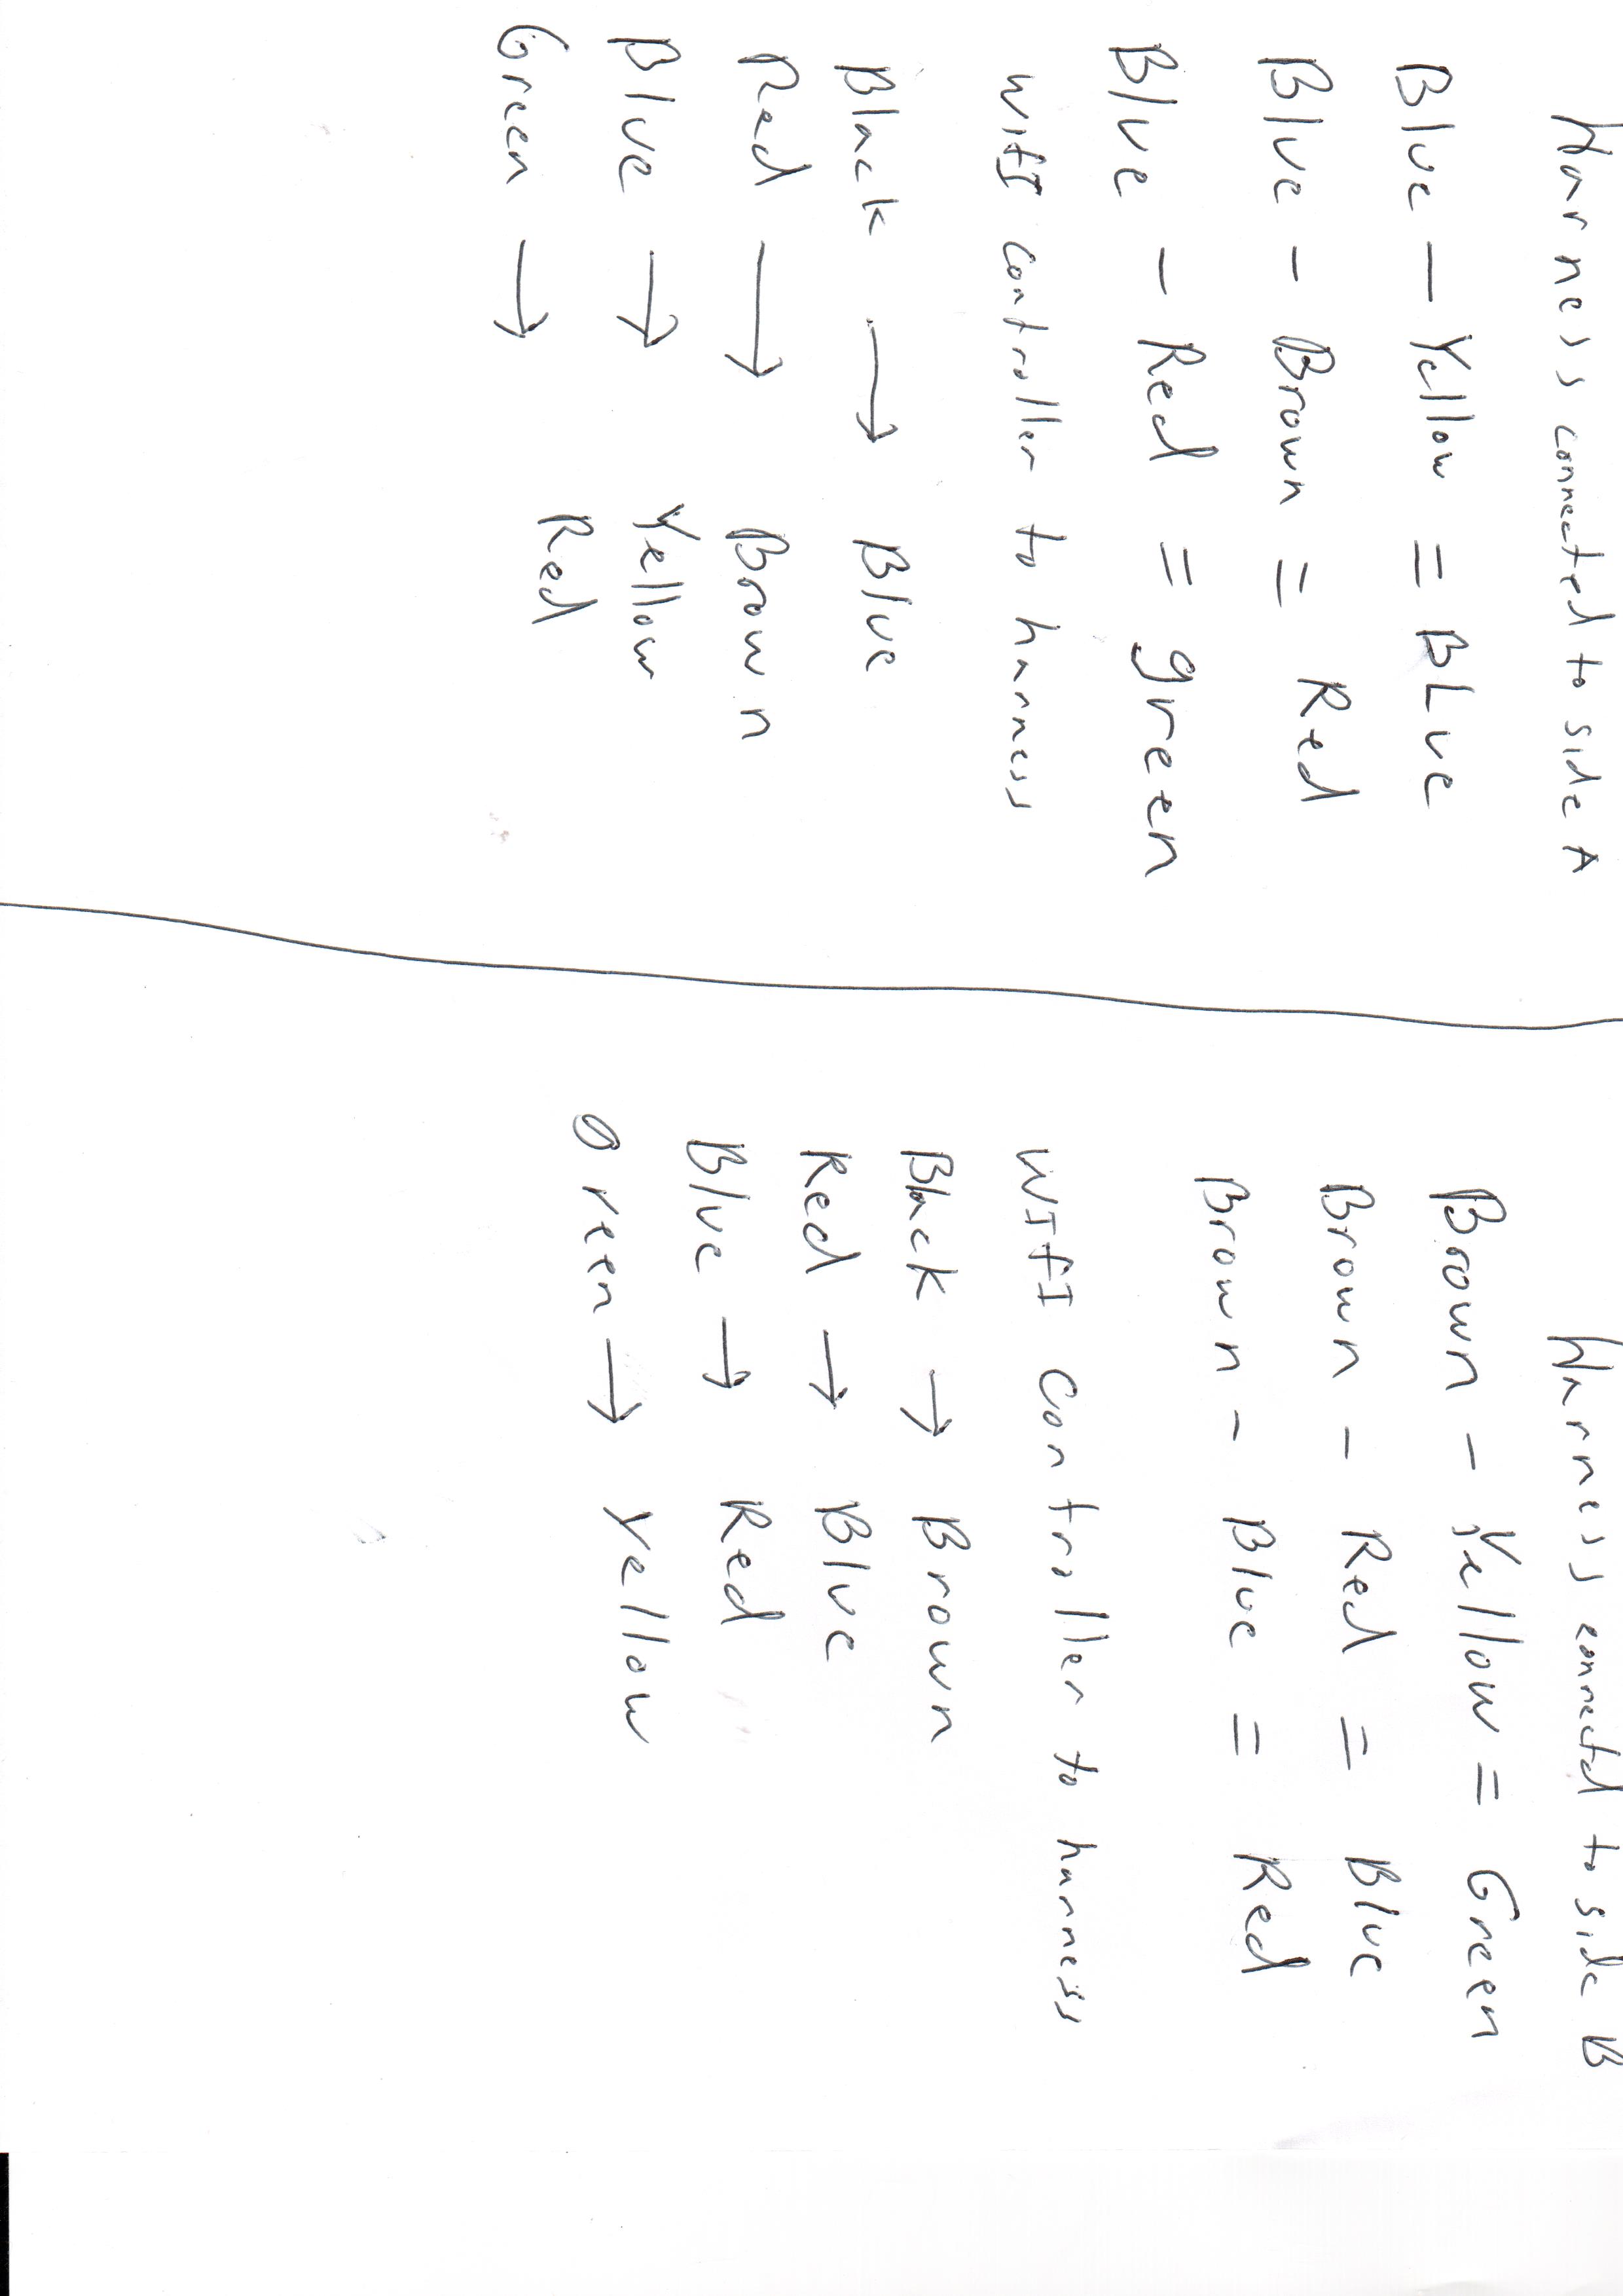 Harness connected to side A
Blue - Yellow = BLue
Blue - Brown = Red
Blue - Red = green
WifI controller to harness
Black → Blue
Red → Brown
Blue → Yellow
Green → Red
Harness connected to side B
Brown - Yellow = Green
Brown - Red = Blue
Brown - Blue = Red
WIfI Controller to harness
Black → Brown
Red → Blue
Blue → Red
Green → yellow